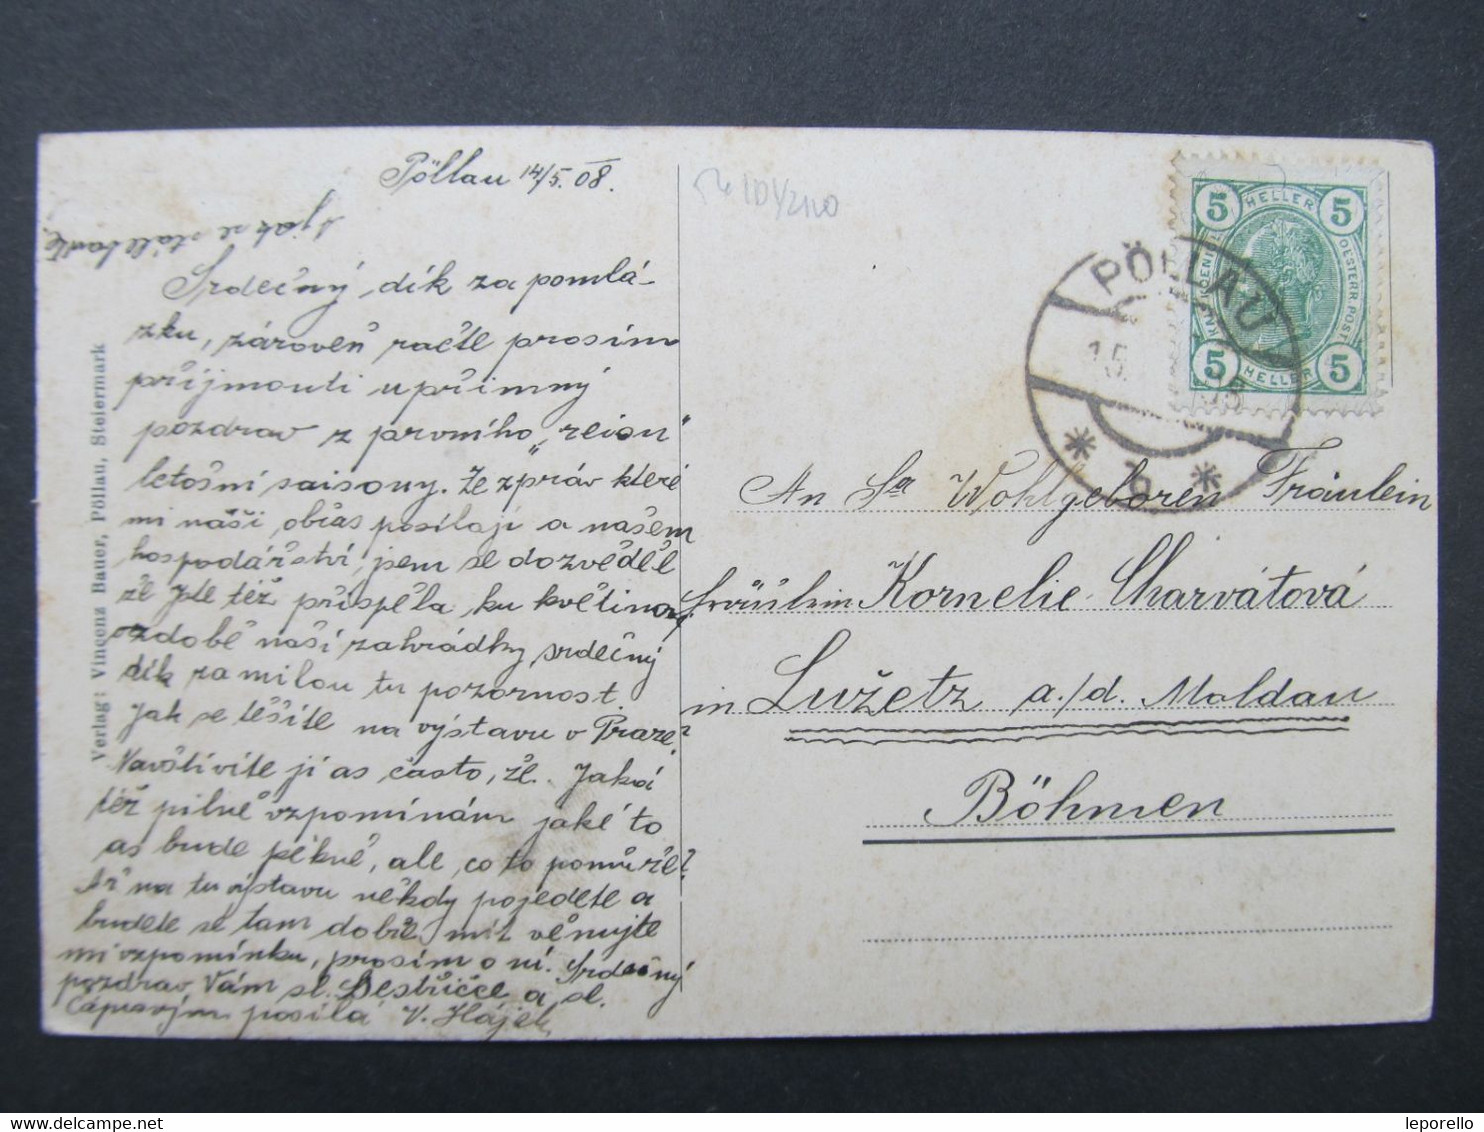 Pöllau 14/5. 08.
Srdečný dík za pomlá-
zku, zároveň račte prosím
přijmouti upřímný
pozdrav z prvního „reion“
letošní saisony. Ze zpráv které
mi náši občas posílají a našem
hospodářství, jsem se dozvěděl
že jste též přispěla ku květinové
ozdobě naší zahrádky srdečný
dík za milou tu pozornost.
Jak se těšíte na výstavu v Praze?
Navštívíte ji as často, že. Jaká
též pilně vzpomínám jaké to
as bude pěkné, ale, co to pomůže?
Až na tu výstavu někdy pojedete a
budete se tam dobře mít věnujte
mi vzpomínku, prosím o ní. Srdečný
pozdrav Vám sl. a sl.
posílá V. Hájek
Verlag: Vincenz Bauer, Pöllau, Steiermark
5 HELLER 5
OESTERR. POST
5 HELLER 5
PÖLLAU
15
* b *
An Wohlgeboren Fräulein
Fräulein Kornelie Charvátová
in Lužetz a./d. Moldau
Böhmen
leporello
delcampe.net